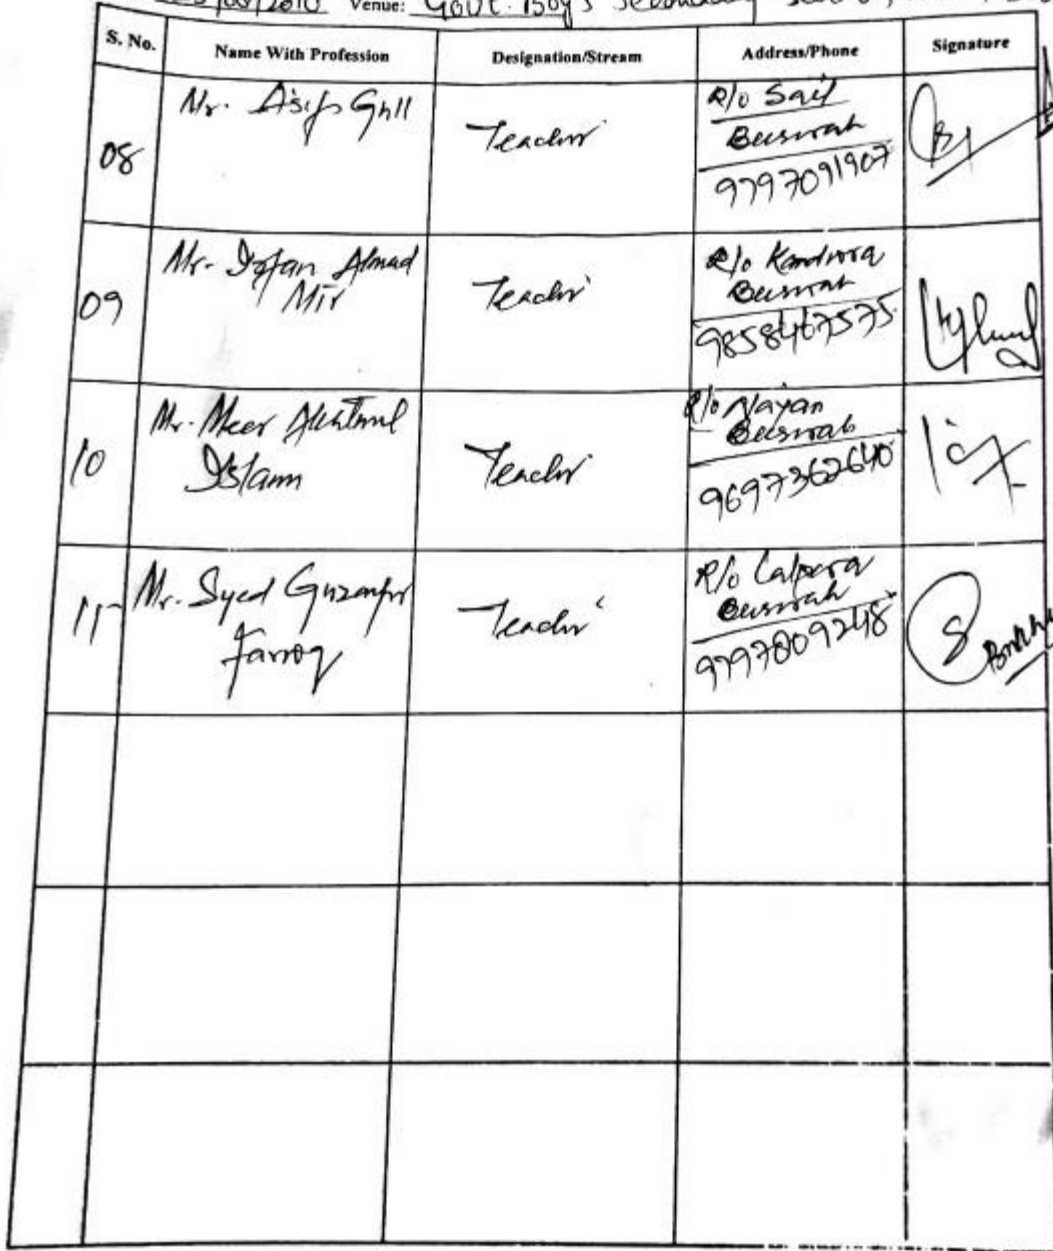 /2010 Venue: Govt. Boy's Secondary
S. No. Name With Profession Designation/Stream Address/Phone Signature
08 Mr. Asif Gull Teacher R/o Sail
Beerwah
9797091907
09 Mr. Irfan Ahmad Teacher R/o Kandwra
Mir Beerwah
9858467575
10 Mr. Meer Akhtrul Teacher R/o Nayan
Islam Beerwah
9697362640
11 Mr. Syed Guzanfr Teacher R/o Lalpora
Farooq Beerwah
9797809248